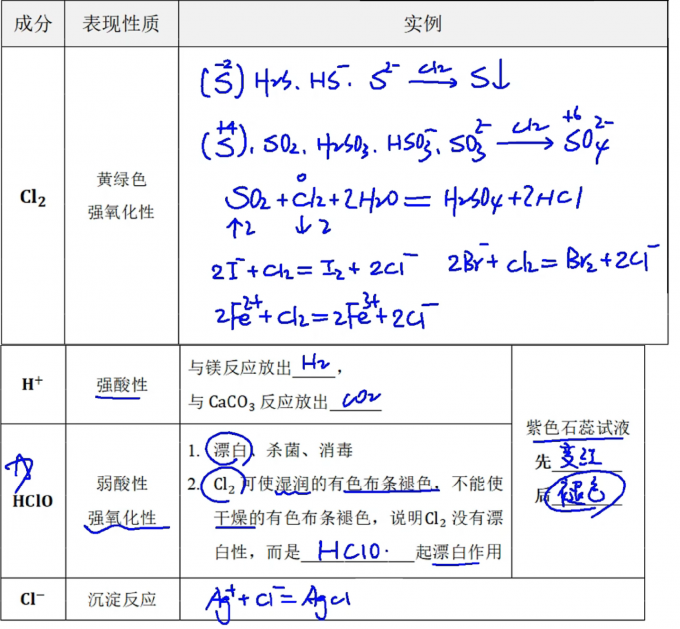 成分 表现性质 实例
Cl₂ 黄绿色 强氧化性
(S⁻²) H₂S、HS⁻、S²⁻ —Cl₂→ S↓
(S⁺⁴)、SO₂、H₂SO₃、HSO₃⁻、SO₃²⁻ —Cl₂→ SO₄²⁻ +6
0
SO₂+Cl₂+2H₂O=H₂SO₄+2HCl
↑2 ↓2
2I⁻+Cl₂=I₂+2Cl⁻ 2Br⁻+Cl₂=Br₂+2Cl⁻
2Fe²⁺+Cl₂=2Fe³⁺+2Cl⁻
H⁺ 强酸性
与镁反应放出 H₂ ,
与 CaCO₃ 反应放出 CO₂
HClO 弱酸性 强氧化性
1. 漂白、杀菌、消毒
2. Cl₂ 可使湿润的有色布条褪色，不能使
干燥的有色布条褪色，说明Cl₂ 没有漂
白性，而是 HClO. 起漂白作用
紫色石蕊试液
先 变红
后 褪色
Cl⁻ 沉淀反应 Ag⁺+Cl⁻=AgCl